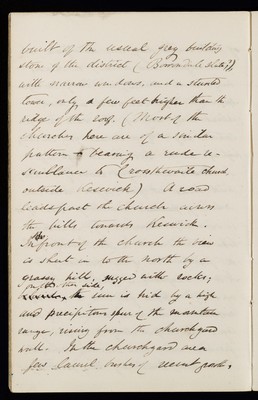 built of the usual grey building
stone of the district (Borrowdale slate?),
with narrow windows, and a stunted
tower, only a few feet higher than the
ridge of the roof. (Most of the
churches here are of a similar
pattern – bearing a rude re-
semblance to Crossthwaite church,
outside Keswick) A road
leads past the church across
the hills towards Keswick.
In front of the church the view
is shut in to the north by a
grassy hill, rugged with rocks;
on the other side,
the view is hid by a high
and precipitous spur of the mountain
range, rising from the churchyard
wall. In the churchyard are a
few laurel bushes of recent growth,